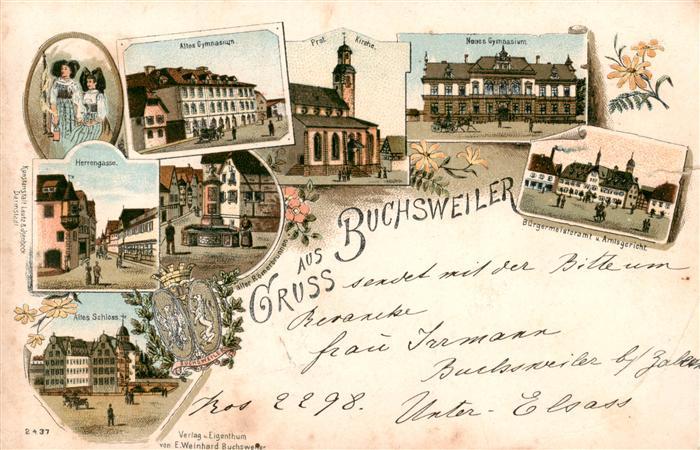 Altes Gymnasium.
Prot. Kirche.
Neues Gymnasium.
Herrengasse.
alter Römerbrunnen
Bürgermeisteramt u. Amtsgericht.
Kunstanstalt Lautz & Isenbeck
Darmstadt
GRUSS AUS BUCHSWEILER
sendet mit der Bitte um
Revanche
Frau Irrmann
Buchsweiler b/
Unter-Elsass
2298.
Altes Schloss.
BUCHSWEILER
2437
Verlag u. Eigenthum
von E. Weinhard Buchsweiler